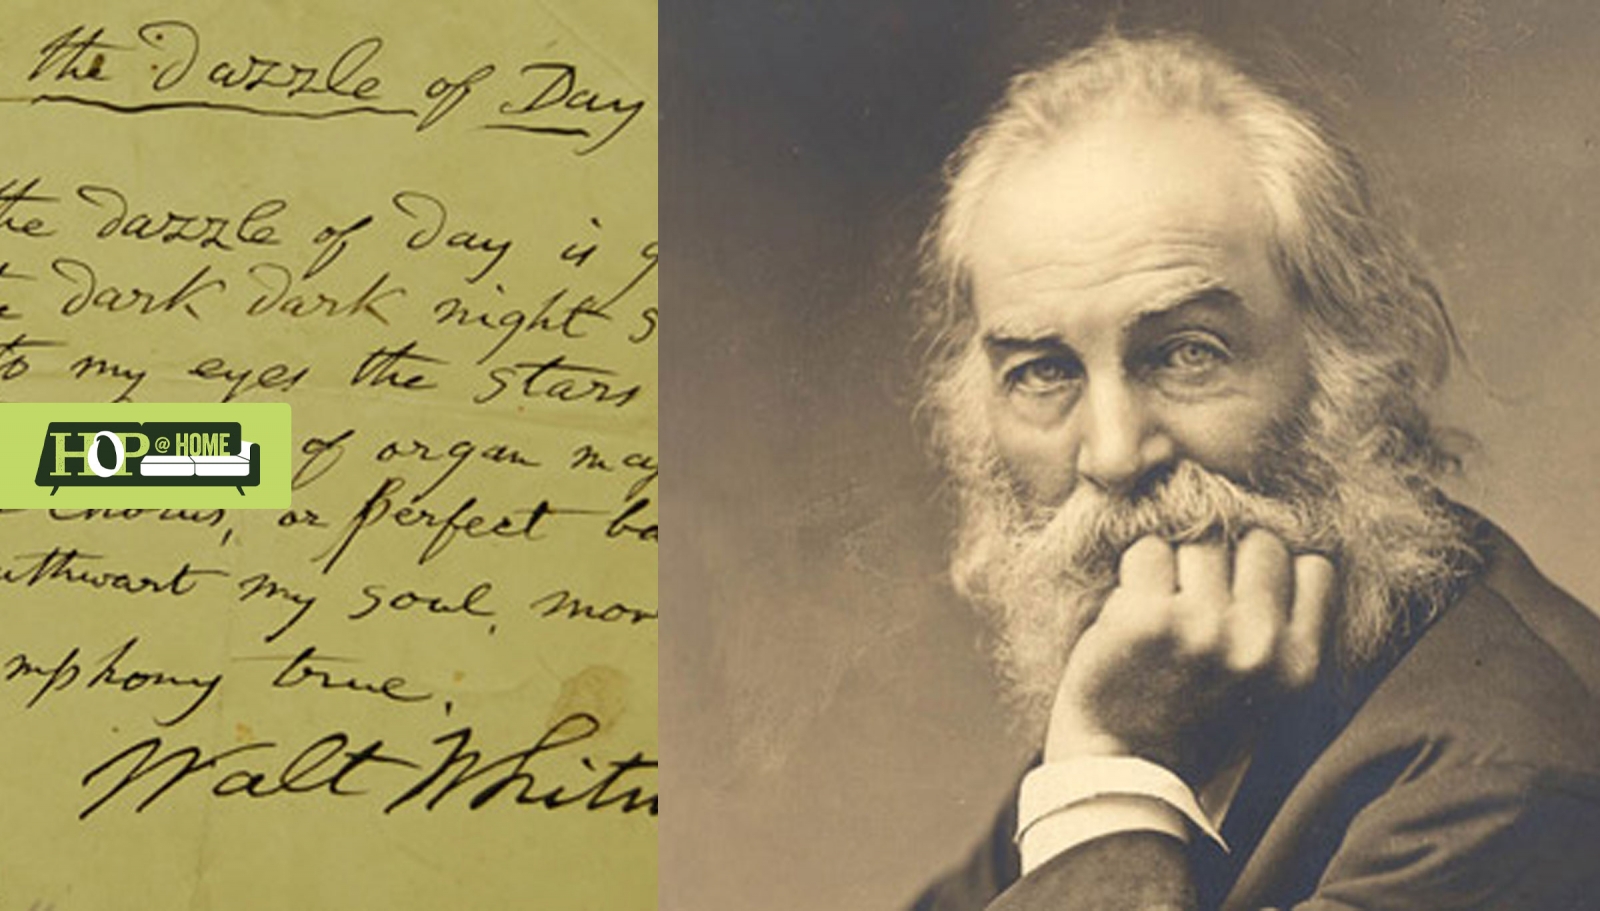 the Dazzle of Day
the dazzle of day is
dark dark night
to my eyes the stars
HOP @ HOME
of organ
chorus, or perfect
my soul,
mphony true.
Walt Whitm